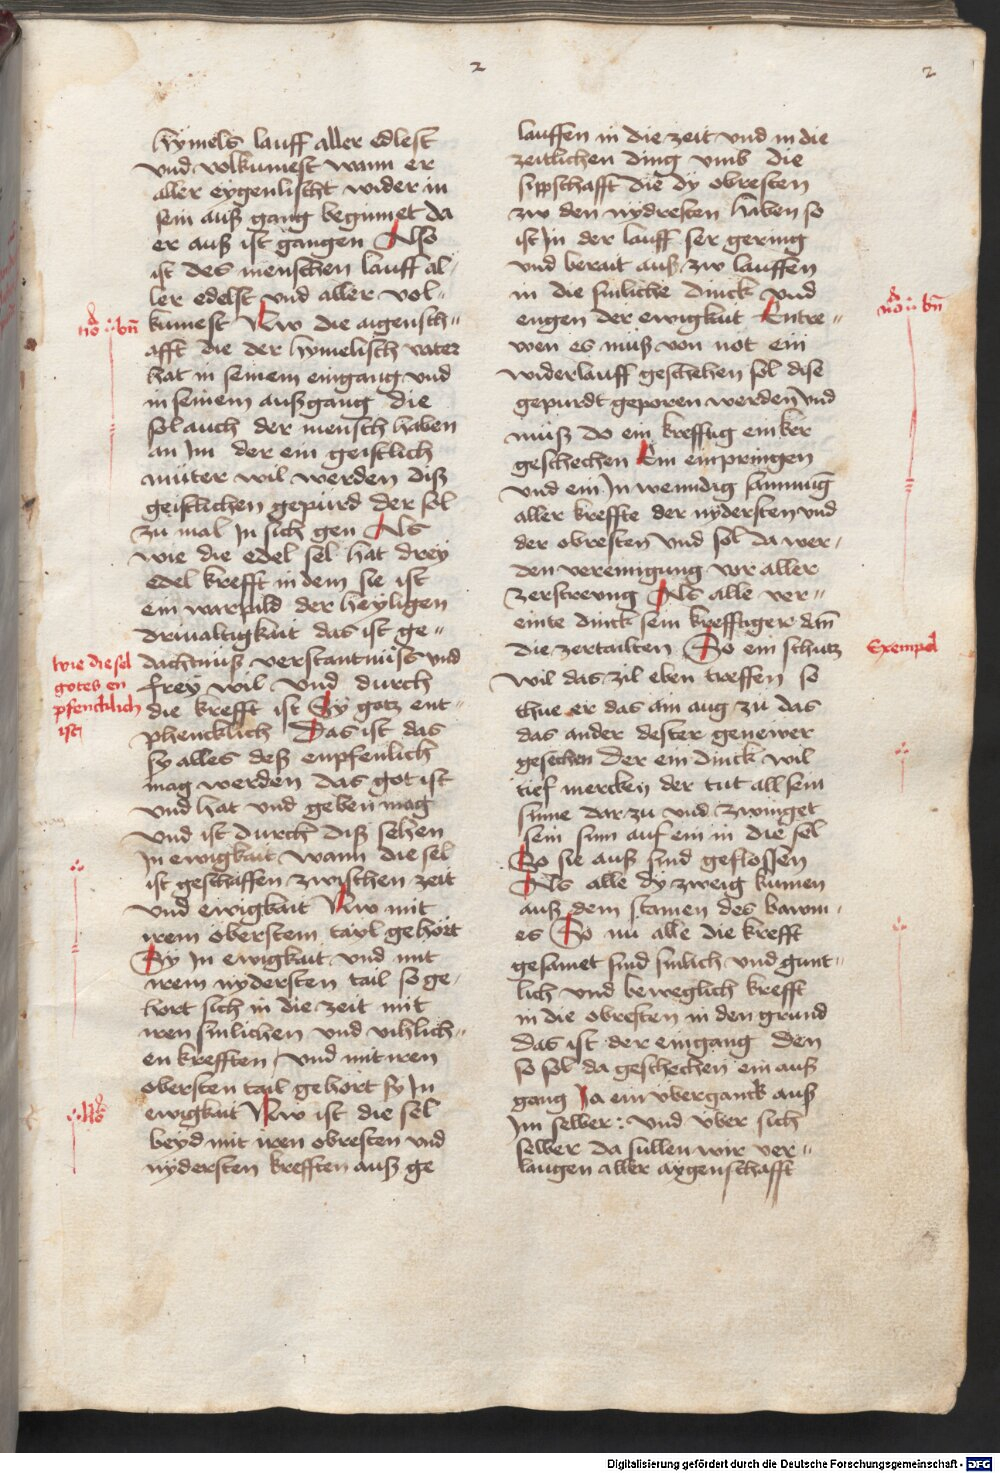 2
2
hymels lauff aller edlest
und volkumest wann er
aller eygenlischt wider in
sein auß gang beginnet da
er auß ist gangen Also
ist des menschen lauff al-
ler edelst und aller vol-
kumest Nw die aigensch-
afft die der hymelisch vater
hat in seinem eingang und
in seinem außgang die
sol auch der mensch haben
an Im der ein geistlich
muter wil werden diß
geistlichen gepurd der sol
zu mal In sich gen Als
wie die edel sel hat drey
edel krefft in dem sie ist
ein war pild der heyligen
drivaltigkait das ist ge-
dachtnuß verstantnuß und
frey wil und durch
die krefft ist Sy gotz ent-
phencklich Das ist das
sy alles deß enpfenlich
mag werden das got ist
und hat und geben mag
und ist durch diß sehen
In ewigkait wann die sel
ist geschaffen zwischen zeit
und ewigkait Nw mit
irem oberstem tayl gehört
Sy In ewigkait und mit
irem nydersten tail so ge-
hört sich in die zeit mit
iren sinlichen und vihlich-
en krefften und mit iren
obersten tail gehört sy In
ewigkait Nw ist die sel
beyd mit iren obresten und
nydersten krefften auß ge
lauffen in die zeit und in die
zeitlichen ding umb die
sippschafft die dy obresten
zw den nydresten haben so
ist In der lauff ser gering
und berait auß zw lauffen
in die sinliche dinck und
engen der ewigkait Entre-
wen es muß von not ein
widerlauff geschehen sol dise
gepurdt geporen werden und
muß do ein krefftig einker
geschechen Ein einpringen
und ein In wenndig samnung
aller kreffte der nydersten und
der obresten und sol da wer-
den vereinigung vor aller
zerstreung Als alle ver-
einte dinck sein krefftiger dann
die zertailten So ein schutz
wil das zil eben treffen so
thue er das ain aug zu das
das ander dester genewer
gesechen Der ein dinck wil
tief mercken der tut all sein
sinne dar zu und zwinget
sein sinn auf ein in die sel
So sie auß sind geflossen
Als alle dy zweig kumen
auß dem stamen des bawm-
es So nu alle die krefft
gesamet sind sinlich und gunt-
lich und beweglich krefft
in die obresten in den grund
das ist der eingang den
so sol da geschechen ein auß
gang Ja ein uberganck auß
Im selber: und uber sich
selber da sullen wir ver-
laugen aller aygenschafft
wie die sel
gotes en
pfencklich
ist
Exempel